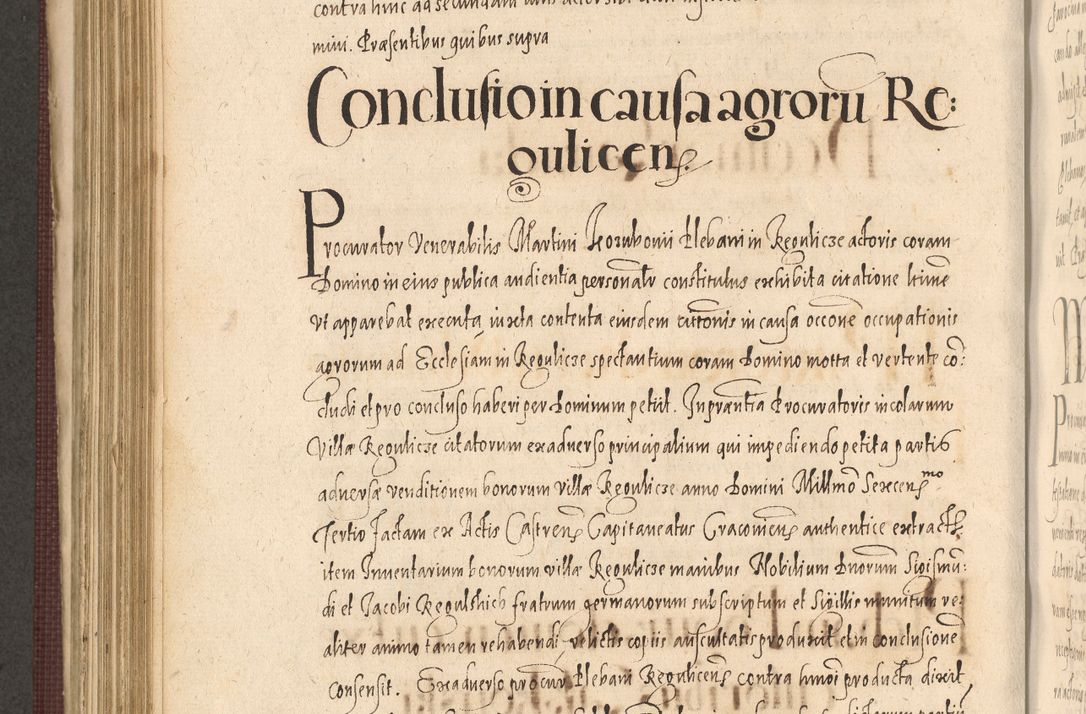 mini. Præsentibus quibus supra
Conclusio in causa agrorũ Re:
gulicen.
Procurator Venerabilis Martini Kozubovii Plebani in Regulicze actoris coram
Domino in eius publica audientia personalr constitutus exhibita citatione ltime
ut apparebat executa, iuxta contenta eiusdem cittonis in causa occone occupationis
agrorum ad Ecclesiam in Regulicze spectantium coram Domino motta et vertente co:
cludi et pro concluso haberi per Dominum petiit. In præntia Procuratoris incolarum
Villæ Regulicze citatorum ex adverso principalium qui impediendo petita partis
adversæ venditionem bonorum villæ Regulicze anno Domini Millmo Sexcen mo
Tertio factam ex Actis Castren Capitaneatus Cracovien authentice extract
item Inventarium bonorum villæ Regulicze manibus Nobilium Dnorum Sigismũ:
di et Jacobi Regulskich fratrum germanorum subscriptum et Sigillis munitum re:
aliter animo tamen rehabendi relictis copiis auscultatis produxit et in conclusione
consensit. Ex adverso procur Plebani Regulicen contra hmoi producta dixit,